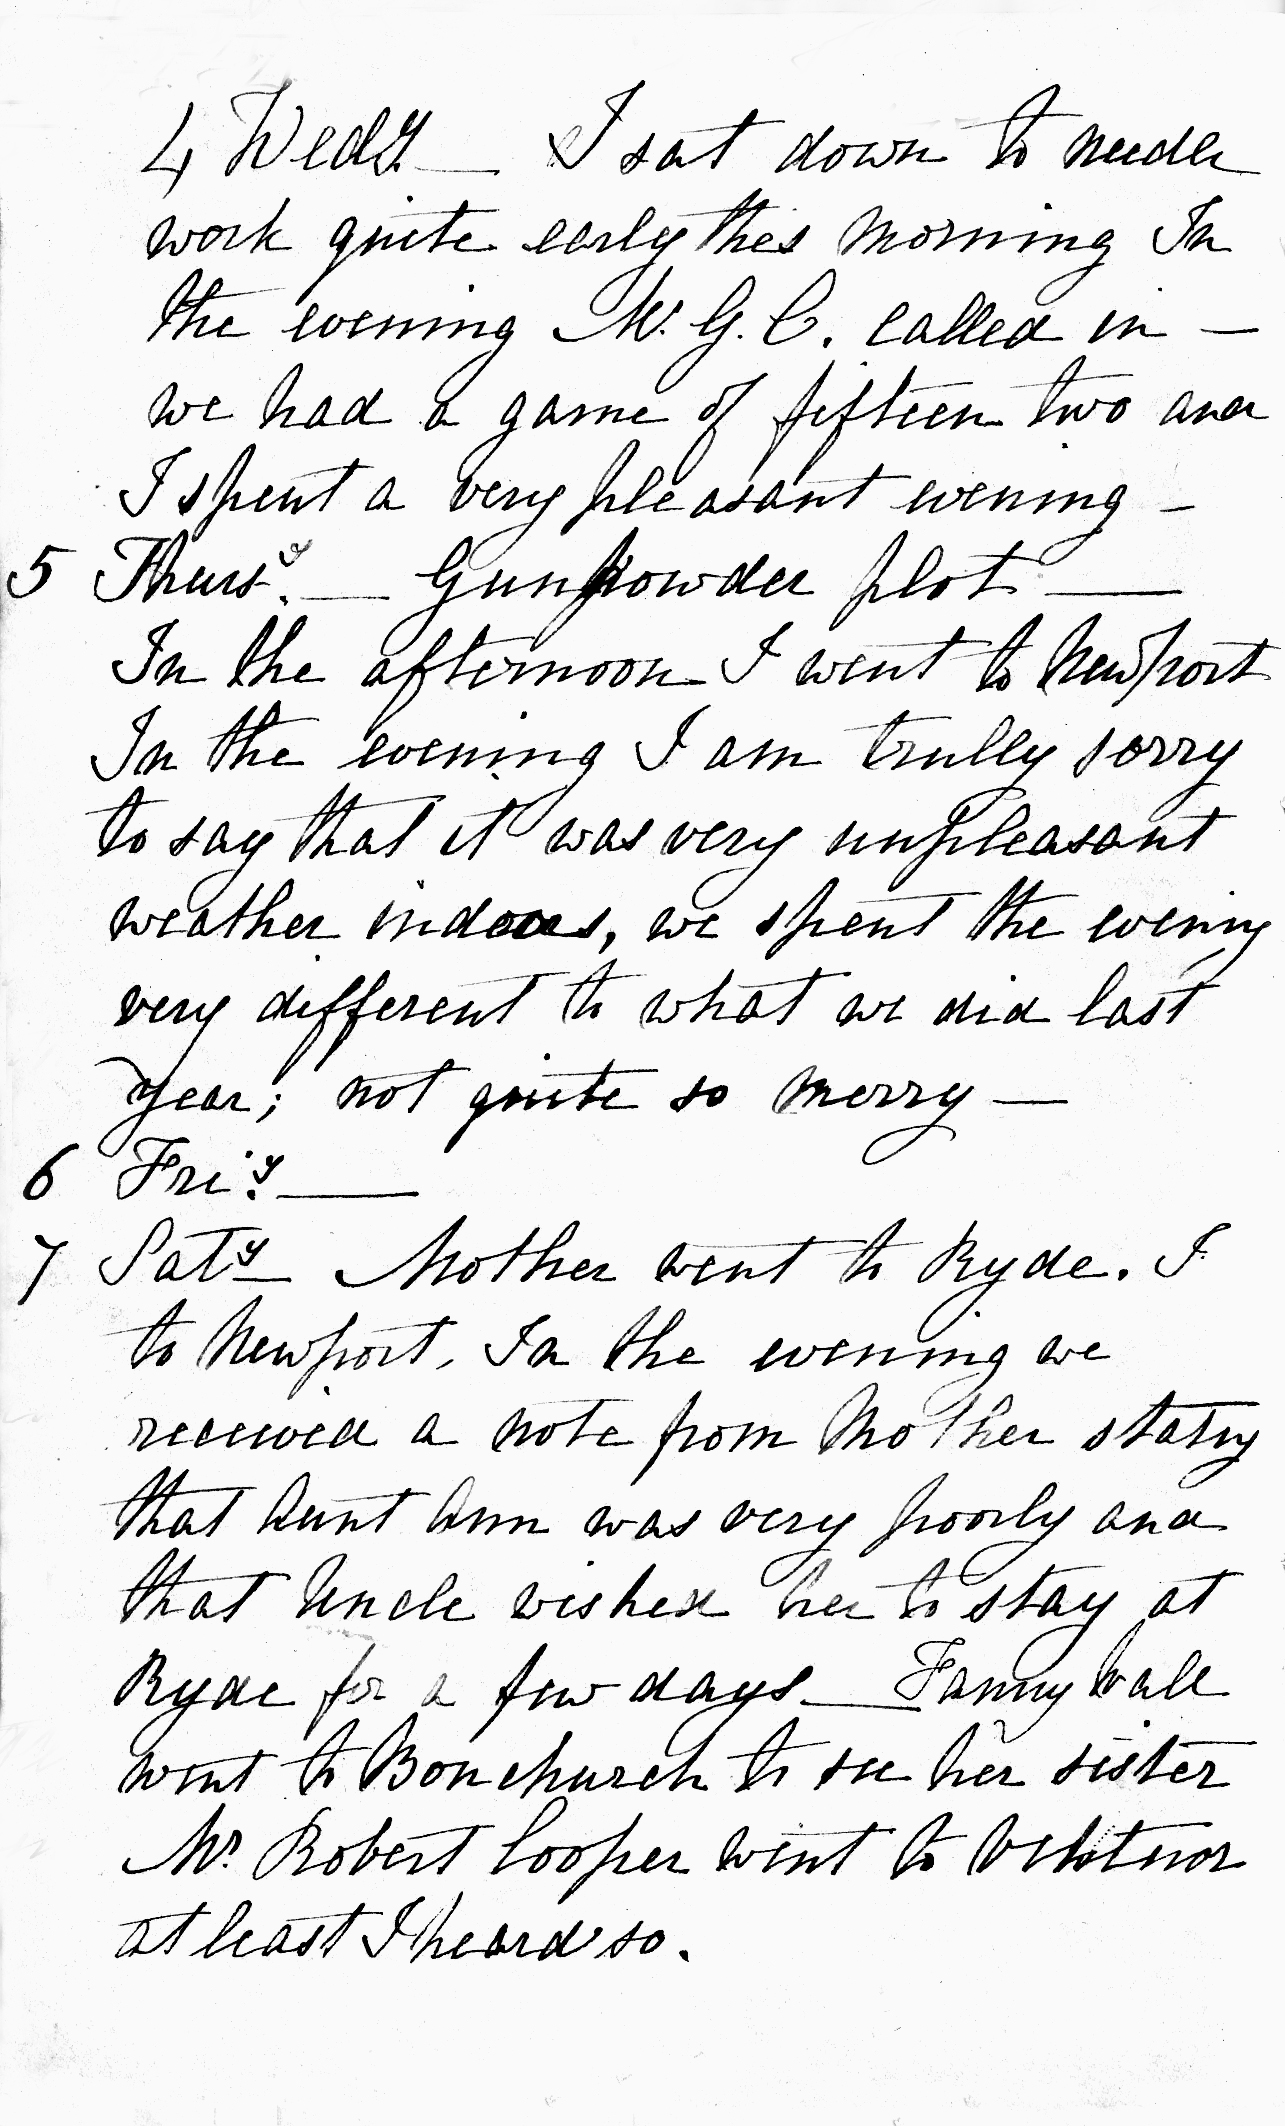 4 Wedy — I sat down to needle
work quite early this morning In
the evening M. G. C. called in —
we had a game of fifteen two and
I spent a very pleasant evening –
5 Thursy. — Gunpowder plot —
In the afternoon I went to Newport
In the evening I am trully sorry
to say that it was very unpleasant
weather indoors, we spent the evening
very different to what we did last
year; not quite so merry —
6 Friy. —
7 Saty Mother went to Ryde. I
to Newport. In the evening we
received a note from Mother stating
that Aunt Ann was very poorly and
that Uncle wished her to stay at
Ryde for a few days — Fanny
went to Bonchurch to see her sister
Mr Robert Cooper went to Ventnor
at least I heard so.